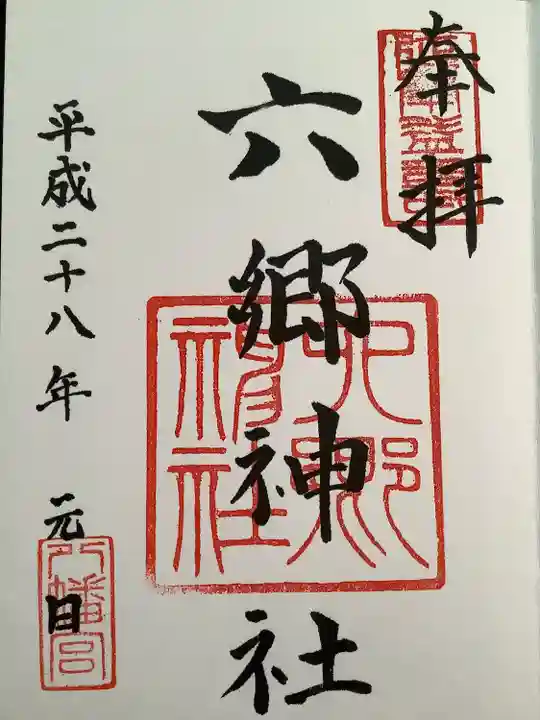 奉拝
六郷神社
平成二十八年 元日
八幡宮